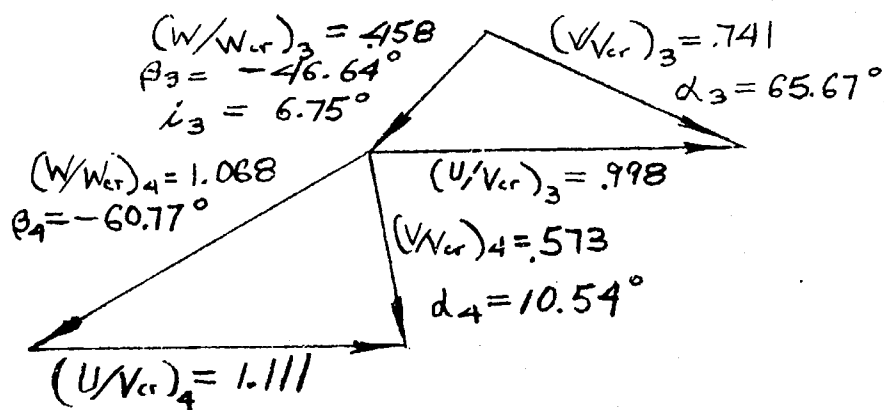 (W/Wcr)3 = .458
β3 = -46.64°
i3 = 6.75°
(V/Vcr)3 = .741
α3 = 65.67°
(W/Wcr)4 = 1.068
β4 = -60.77°
(U/Vcr)3 = .998
(V/Vcr)4 = .573
α4 = 10.54°
(U/Vcr)4 = 1.111